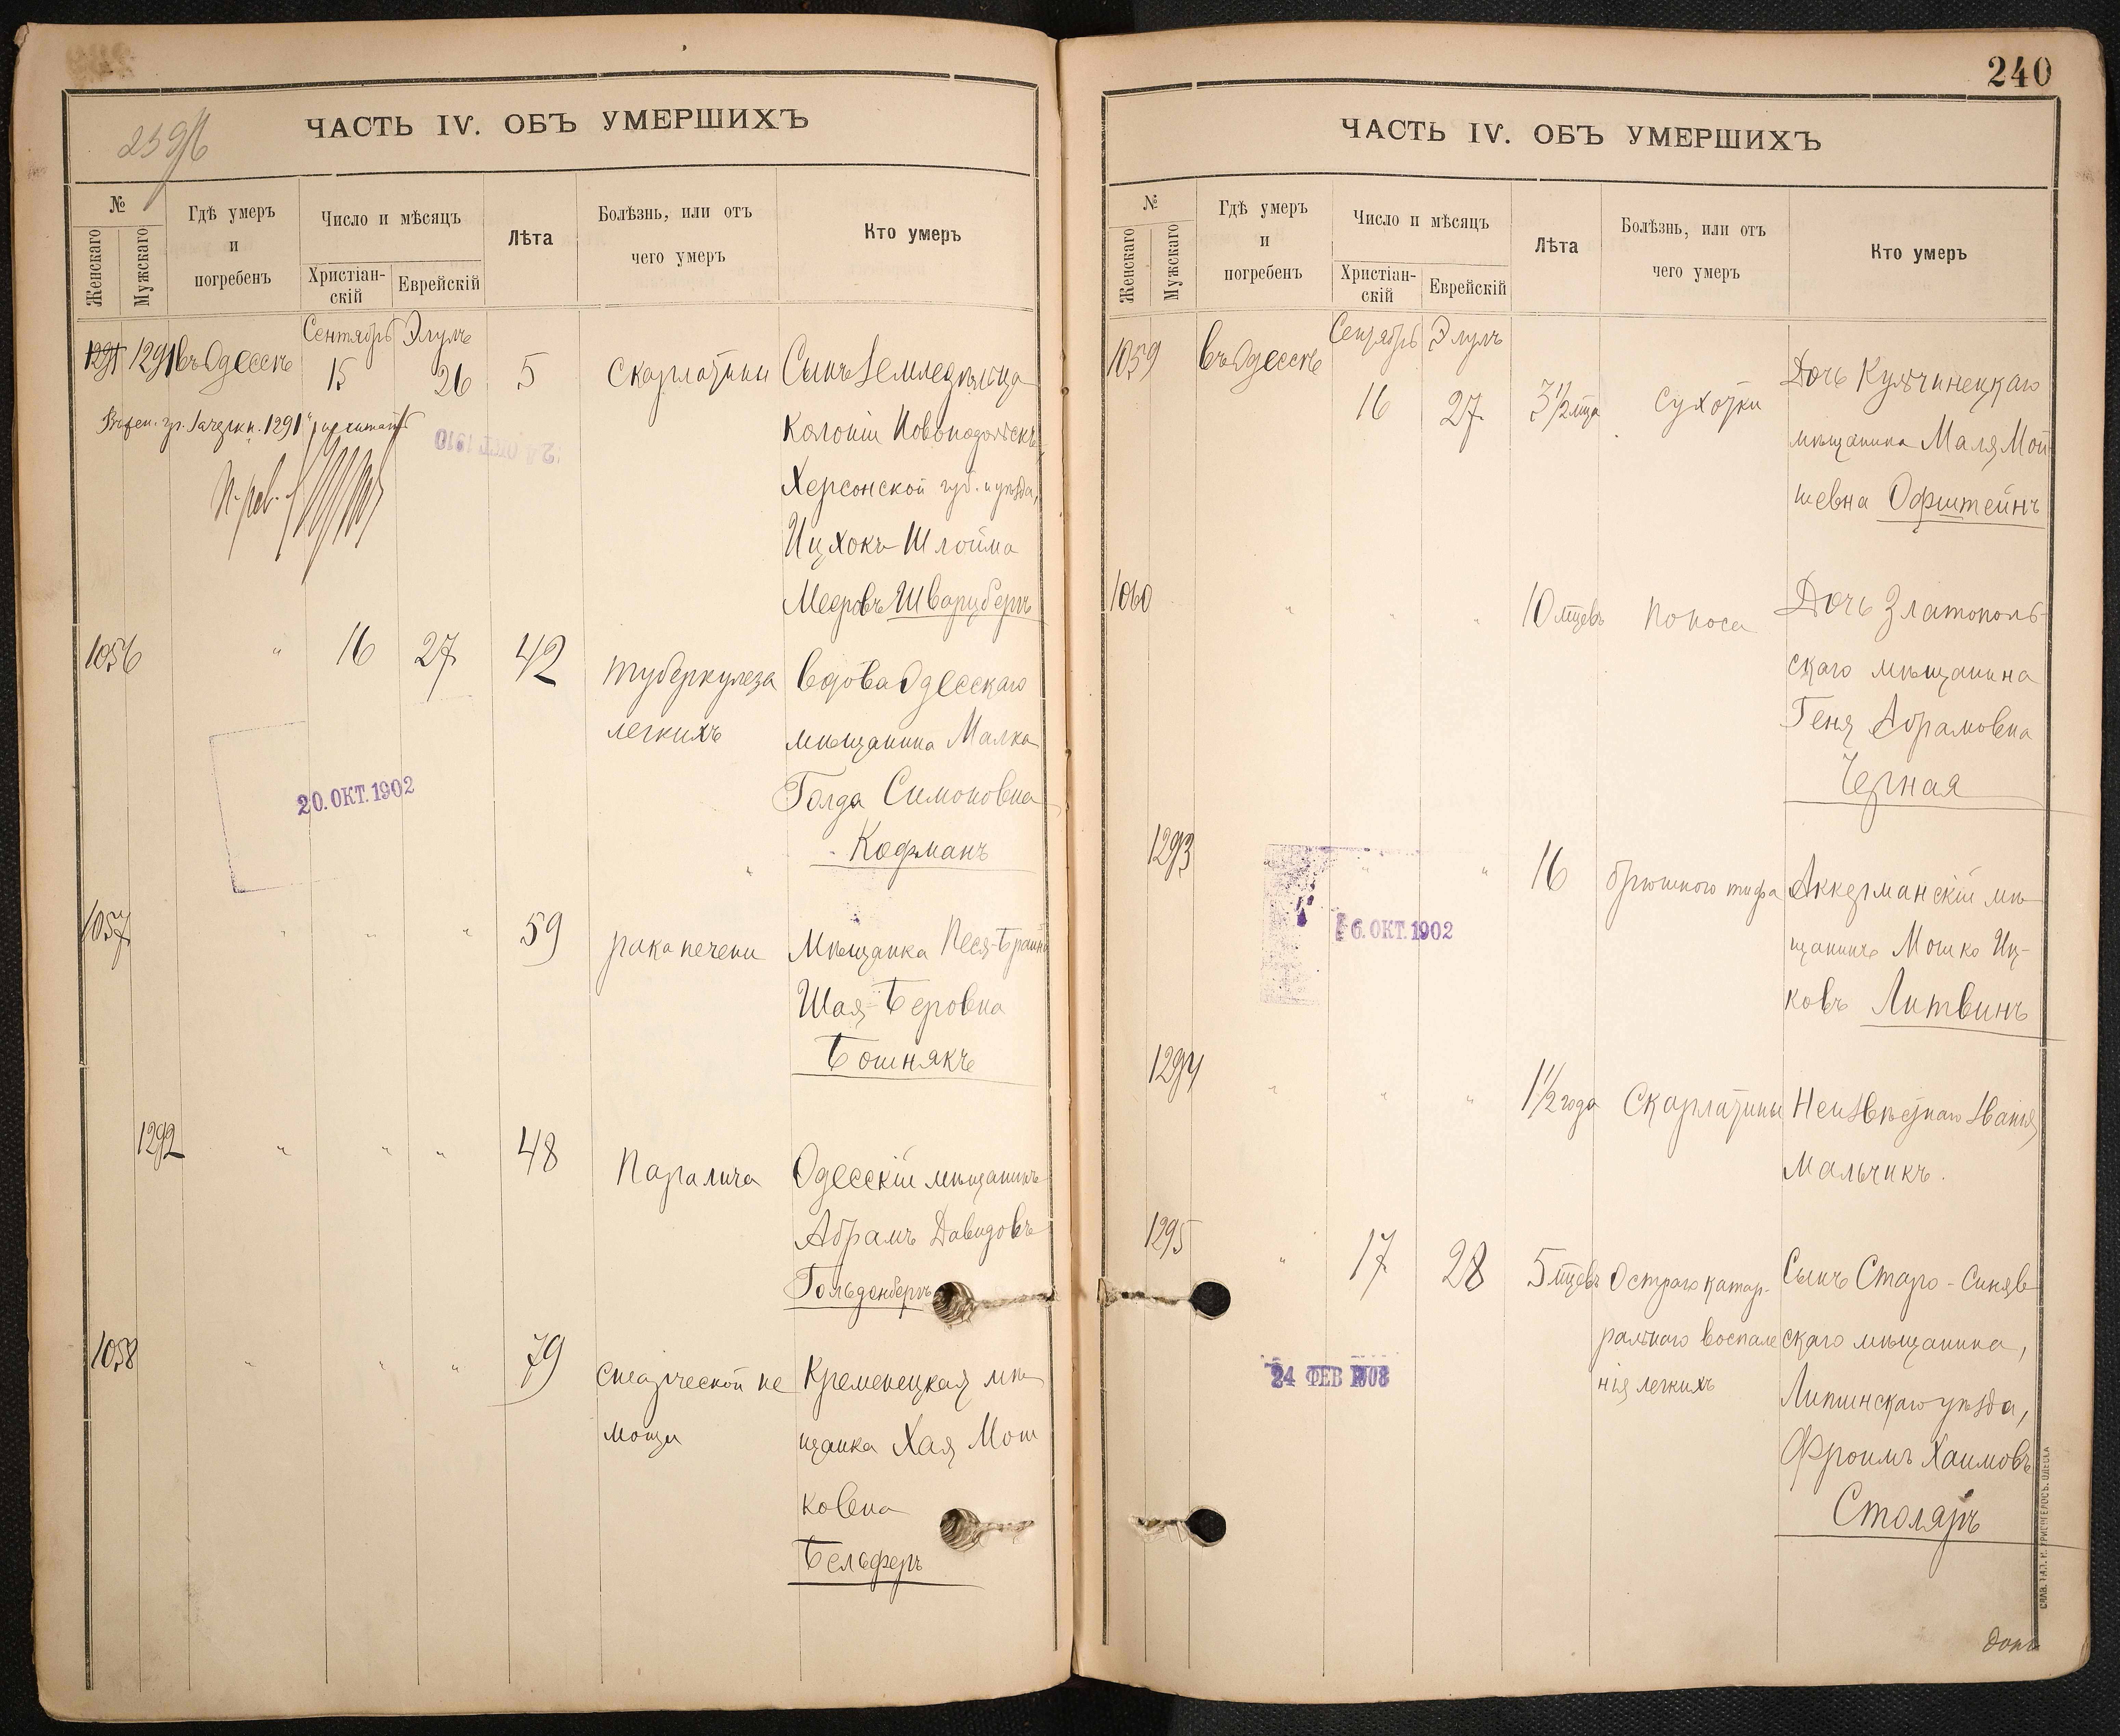 239/б
ЧАСТЬ IV. ОБЪ УМЕРШИХЪ
№
Женскаго
Мужскаго
Гдѣ умеръ
и
погребенъ
Число и мѣсяцъ
Христіан-
скій
Еврейскій
Лѣта
Болѣзнь, или отъ
чего умеръ
Кто умеръ
Сентябрь Элулъ
1291 1291 въ Одессѣ 15 26 5 Скарлатины Сынъ земледѣльца
колоніи Новоподольскъ
Херсонской губ. и уѣзда,
Ицхокъ-Шлойма
Мееровъ Шварцбергъ
Въ жен. гр. зачеркн. 1291
1056 " 16 27 42 туберкулеза
легкихъ
вдова Одесскаго
мѣщанина Малка
Голда Симоновна
Кофманъ
20. ОКТ. 1902
1057 " " " 59 рака печени Мѣщанка Песя-Брайна
Шая-Беровна
Бошнякъ
1292 " " " 48 Паралича Одесскій мѣщанинъ
Абрамъ Давидовъ
Гольденбергъ
1058 " " " 79 старческой не
мощи
Кременецкая мѣ
щанка Хая Мош
ковна
Бельферъ
240
ЧАСТЬ IV. ОБЪ УМЕРШИХЪ
№
Женскаго
Мужскаго
Гдѣ умеръ
и
погребенъ
Число и мѣсяцъ
Христіан-
скій
Еврейскій
Лѣта
Болѣзнь, или отъ
чего умеръ
Кто умеръ
Сентябрь Элулъ
1059 въ Одессѣ 16 27 3½ мца Сухотки Дочь Кульчинецкаго
мѣщанина Маля Мой
шевна Офштейнъ
1060 " " " 10 мцевъ поноса Дочь Златополь-
скаго мѣщанина
Геня Абрамовна
Черная
1293 " " 16 брюшного тифа Аккерманскій мѣ
щанинъ Мошко Иц-
ковъ Литвинъ
6. ОКТ. 1902
1294 " " " 1½ года Скарлатины Неизвѣстнаго званія
Мальчикъ.
1295 " 17 28 5 мцевъ Остраго катар-
ральнаго воспале
нія легкихъ
Сынъ Старо-Синяв
скаго мѣщанина,
Литинскаго уѣзда,
Фроимъ Хаимовъ
Столяръ
24 ФЕВ 1908
дочь